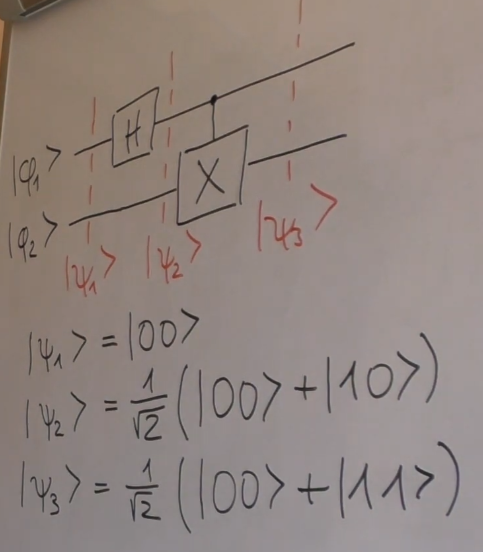 H
|φ₁⟩
X
|φ₂⟩
|ψ₁⟩ |ψ₂⟩ |ψ₃⟩
|ψ₁⟩ = |00⟩
|ψ₂⟩ = 1/√2 (|00⟩ + |10⟩)
|ψ₃⟩ = 1/√2 (|00⟩ + |11⟩)